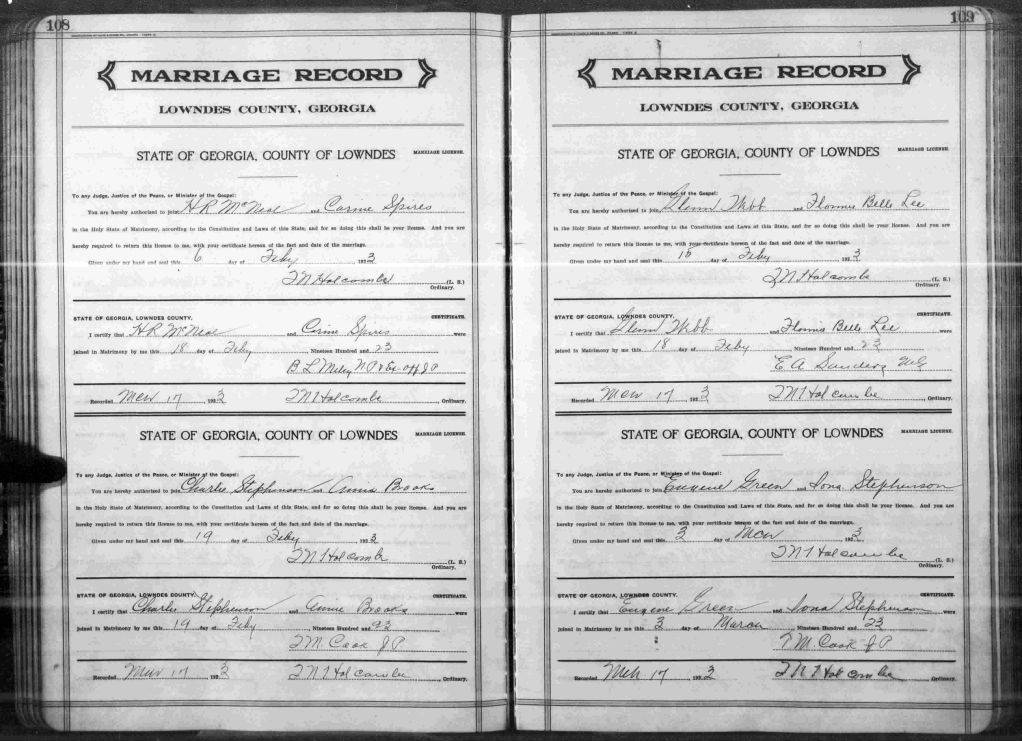 108
MARRIAGE RECORD
LOWNDES COUNTY, GEORGIA
STATE OF GEORGIA, COUNTY OF LOWNDES MARRIAGE LICENSE.
To any Judge, Justice of the Peace, or Minister of the Gospel:
You are hereby authorized to join H R McNeal and Corine Spires
in the Holy State of Matrimony, according to the Constitution and Laws of this State, and for so doing this shall be your license. And you are
hereby required to return this license to me, with your certificate hereon of the fact and date of the marriage.
Given under my hand and seal this 6 day of Feby 1923
T N Holcombe (L. S.)
Ordinary.
STATE OF GEORGIA, LOWNDES COUNTY. CERTIFICATE.
I certify that H R McNeal and Corine Spires were
joined in Matrimony by me this 18 day of Feby Nineteen Hundred and 23
B L Miley N P & Ex-off J P
Recorded Mch 17, 1923 T N Holcombe, Ordinary.
STATE OF GEORGIA, COUNTY OF LOWNDES MARRIAGE LICENSE.
To any Judge, Justice of the Peace, or Minister of the Gospel:
You are hereby authorized to join Charlie Stephenson and Annie Brooks
in the Holy State of Matrimony, according to the Constitution and Laws of this State, and for so doing this shall be your license. And you are
hereby required to return this license to me, with your certificate hereon of the fact and date of the marriage.
Given under my hand and seal this 19 day of Feby 1923
T N Holcombe (L. S.)
Ordinary.
STATE OF GEORGIA, LOWNDES COUNTY. CERTIFICATE.
I certify that Charlie Stephenson and Annie Brooks were
joined in Matrimony by me this 19 day of Feby Nineteen Hundred and 23
T M. Cook J P
Recorded Mch 17 1923 T N Holcombe, Ordinary.
109
MARRIAGE RECORD
LOWNDES COUNTY, GEORGIA
STATE OF GEORGIA, COUNTY OF LOWNDES MARRIAGE LICENSE.
To any Judge, Justice of the Peace, or Minister of the Gospel:
You are hereby authorized to join Glenn Webb and Flonnis Belle Lee
in the Holy State of Matrimony, according to the Constitution and Laws of this State, and for so doing this shall be your license. And you are
hereby required to return this license to me, with your certificate hereon of the fact and date of the marriage.
Given under my hand and seal this day of Feby 1923
T N Holcombe (L. S.)
Ordinary.
STATE OF GEORGIA, LOWNDES COUNTY. CERTIFICATE.
I certify that Glenn Webb and Flonnis Belle Lee were
joined in Matrimony by me this 18 day of Feby Nineteen Hundred and 23
E A Sanders M G
Recorded Mch 17 1923 T N Holcombe, Ordinary.
STATE OF GEORGIA, COUNTY OF LOWNDES MARRIAGE LICENSE.
To any Judge, Justice of the Peace, or Minister of the Gospel:
You are hereby authorized to join Eugene Green and Iona Stephenson
in the Holy State of Matrimony, according to the Constitution and Laws of this State, and for so doing this shall be your license. And you are
hereby required to return this license to me, with your certificate hereon of the fact and date of the marriage.
Given under my hand and seal this 3 day of Mch 1923
T N Holcombe (L. S.)
Ordinary.
STATE OF GEORGIA, LOWNDES COUNTY. CERTIFICATE.
I certify that Eugene Green and Iona Stephenson were
joined in Matrimony by me this 3 day of March Nineteen Hundred and 23
T M. Cook J P
Recorded Mch 17 1923 T N Holcombe, Ordinary.